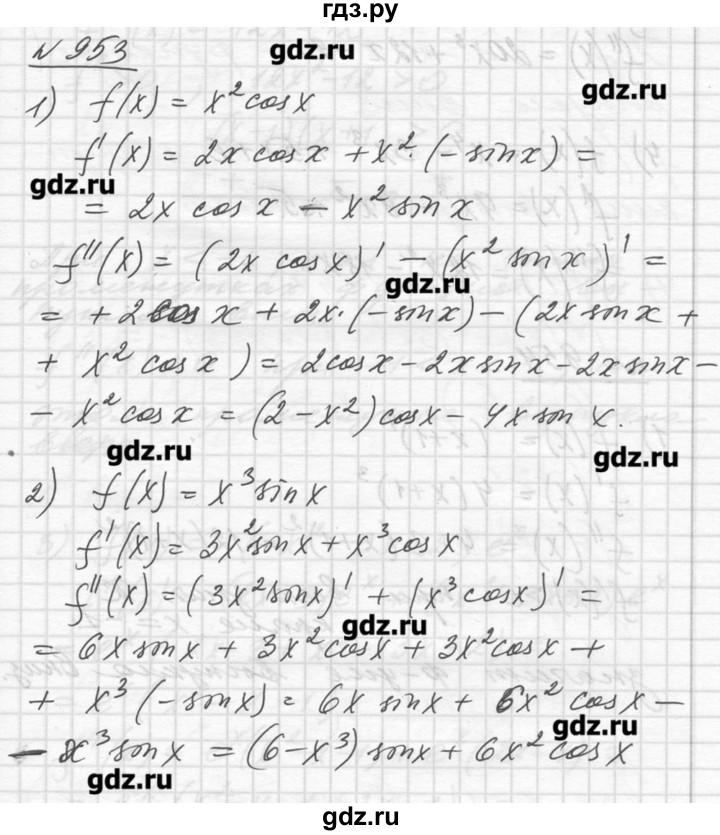 гдз.ру
N 953
gdz.ru
1) f(x) = x² cos x
gdz.ru
f'(x) = 2x cos x + x² · (- sin x) =
gdz.ru
= 2x cos x - x² sin x
f''(x) = (2x cos x)' - (x² sin x)' =
gdz.ru
= + 2 cos x + 2x · (- sin x) - (2x sin x +
+ x² cos x) = 2cos x - 2x sin x - 2x sin x -
- x² cos x = (2 - x²) cos x - 4x sin x.
gdz.ru
gdz.ru
2) f(x) = x³ sin x
f'(x) = 3x² sin x + x³ cos x
f''(x) = (3x² sin x)' + (x³ cos x)' =
gdz.ru
= 6x sin x + 3x² cos x + 3x² cos x +
+ x³ (- sin x) = 6x sin x + 6x² cos x -
gdz.ru
- x³ sin x = (6 - x³) sin x + 6x² cos x
gdz.ru
gdz.ru